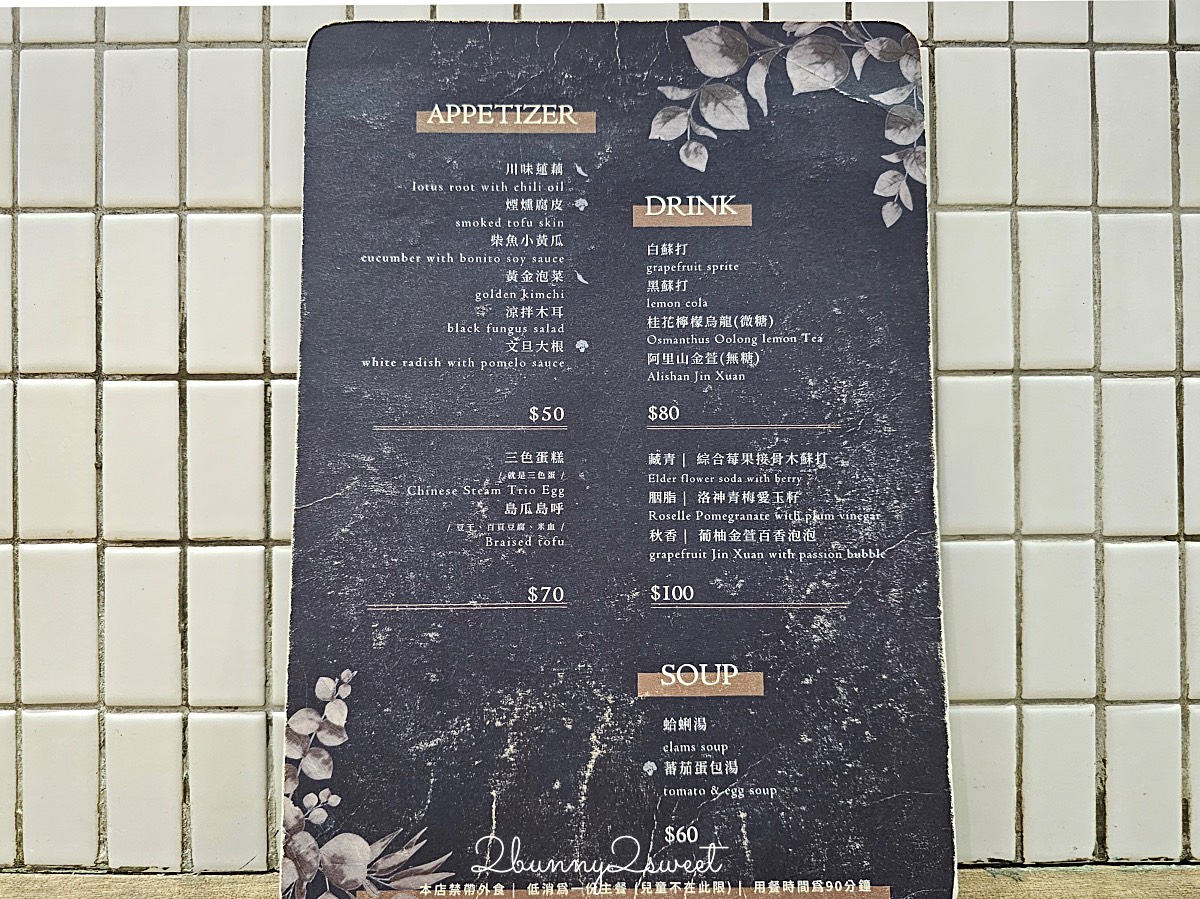 APPETIZER
川味蓮藕
lotus root with chili oil
煙燻腐皮
smoked tofu skin
柴魚小黃瓜
cucumber with bonito soy sauce
黃金泡菜
golden kimchi
涼拌木耳
black fungus salad
文旦大根
white radish with pomelo sauce
$50
三色蛋糕
/ 就是三色蛋 /
Chinese Steam Trio Egg
島瓜島呼
/ 豆干、百頁豆腐、米血 /
Braised tofu
$70
DRINK
白蘇打
grapefruit sprite
黑蘇打
lemon cola
桂花檸檬烏龍(微糖)
Osmanthus Oolong lemon Tea
阿里山金萱(無糖)
Alishan Jin Xuan
$80
藏青 | 綜合莓果接骨木蘇打
Elder flower soda with berry
胭脂 | 洛神青梅愛玉籽
Roselle Pomegranate with plum vinegar
秋香 | 葡柚金萱百香泡泡
grapefruit Jin Xuan with passion bubble
$100
SOUP
蛤蜊湯
clams soup
蕃茄蛋包湯
tomato & egg soup
$60
2bunny2sweet
本店禁帶外食 | 低消為一份主餐 (兒童不在此限) | 用餐時間為90分鐘